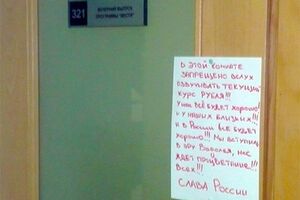 321
ВЕЧЕРНИЙ ВЫПУСК
ПРОГРАММЫ "ВЕСТИ"
В ЭТОЙ КОМНАТЕ
ЗАПРЕЩЕНО ВСЛУХ
ОЗВУЧИВАТЬ ТЕКУЩИЙ
КУРС РУБЛЯ!!!
У НАС ВСЁ БУДЕТ ХОРОШО!
И У НАШИХ БЛИЗКИХ!!!
И В РОССИИ ВСЕ БУДЕТ
ХОРОШО!!! МЫ ВСТУПИЛИ
В ЭРУ ВОДОЛЕЯ, НАС
ЖДЕТ ПРОЦВЕТАНИЕ!!!
ВСЕХ!!!
СЛАВА РОССИИ